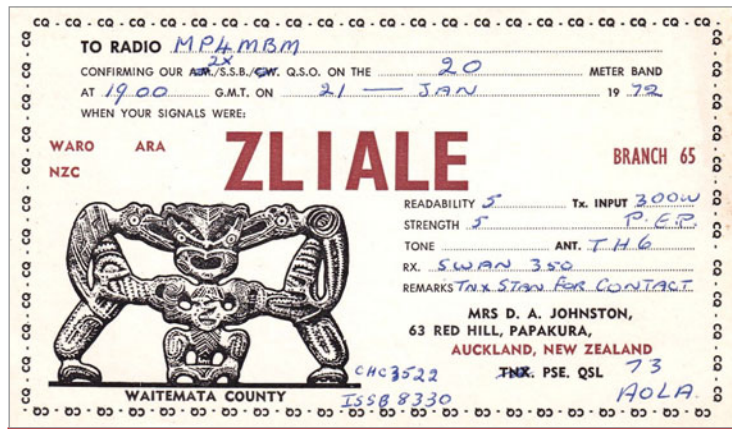 CQ - CQ - CQ - CQ - CQ - CQ - CQ - CQ - CQ - CQ - CQ - CQ - CQ - CQ - CQ - CQ - CQ - CQ
TO RADIO MP4MBM
2X
CONFIRMING OUR A.M./S.S.B./C.W. Q.S.O. ON THE 20 METER BAND
AT 1900 G.M.T. ON 21 — JAN 1972
WHEN YOUR SIGNALS WERE:
WARO ARA
NZC
ZL1ALE
BRANCH 65
READABILITY 5 Tx. INPUT 300W
STRENGTH 5 P.E.P.
TONE ANT. TH6
RX. SWAN 350
REMARKS TNX STAN FOR CONTACT
MRS D. A. JOHNSTON,
63 RED HILL, PAPAKURA,
AUCKLAND, NEW ZEALAND
TNX. PSE. QSL 73
AOLA.
CHC3522
ISSB 8330
WAITEMATA COUNTY